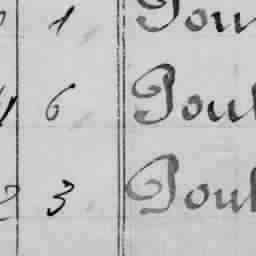 1 Pou
6 Poul
2 3 Poul